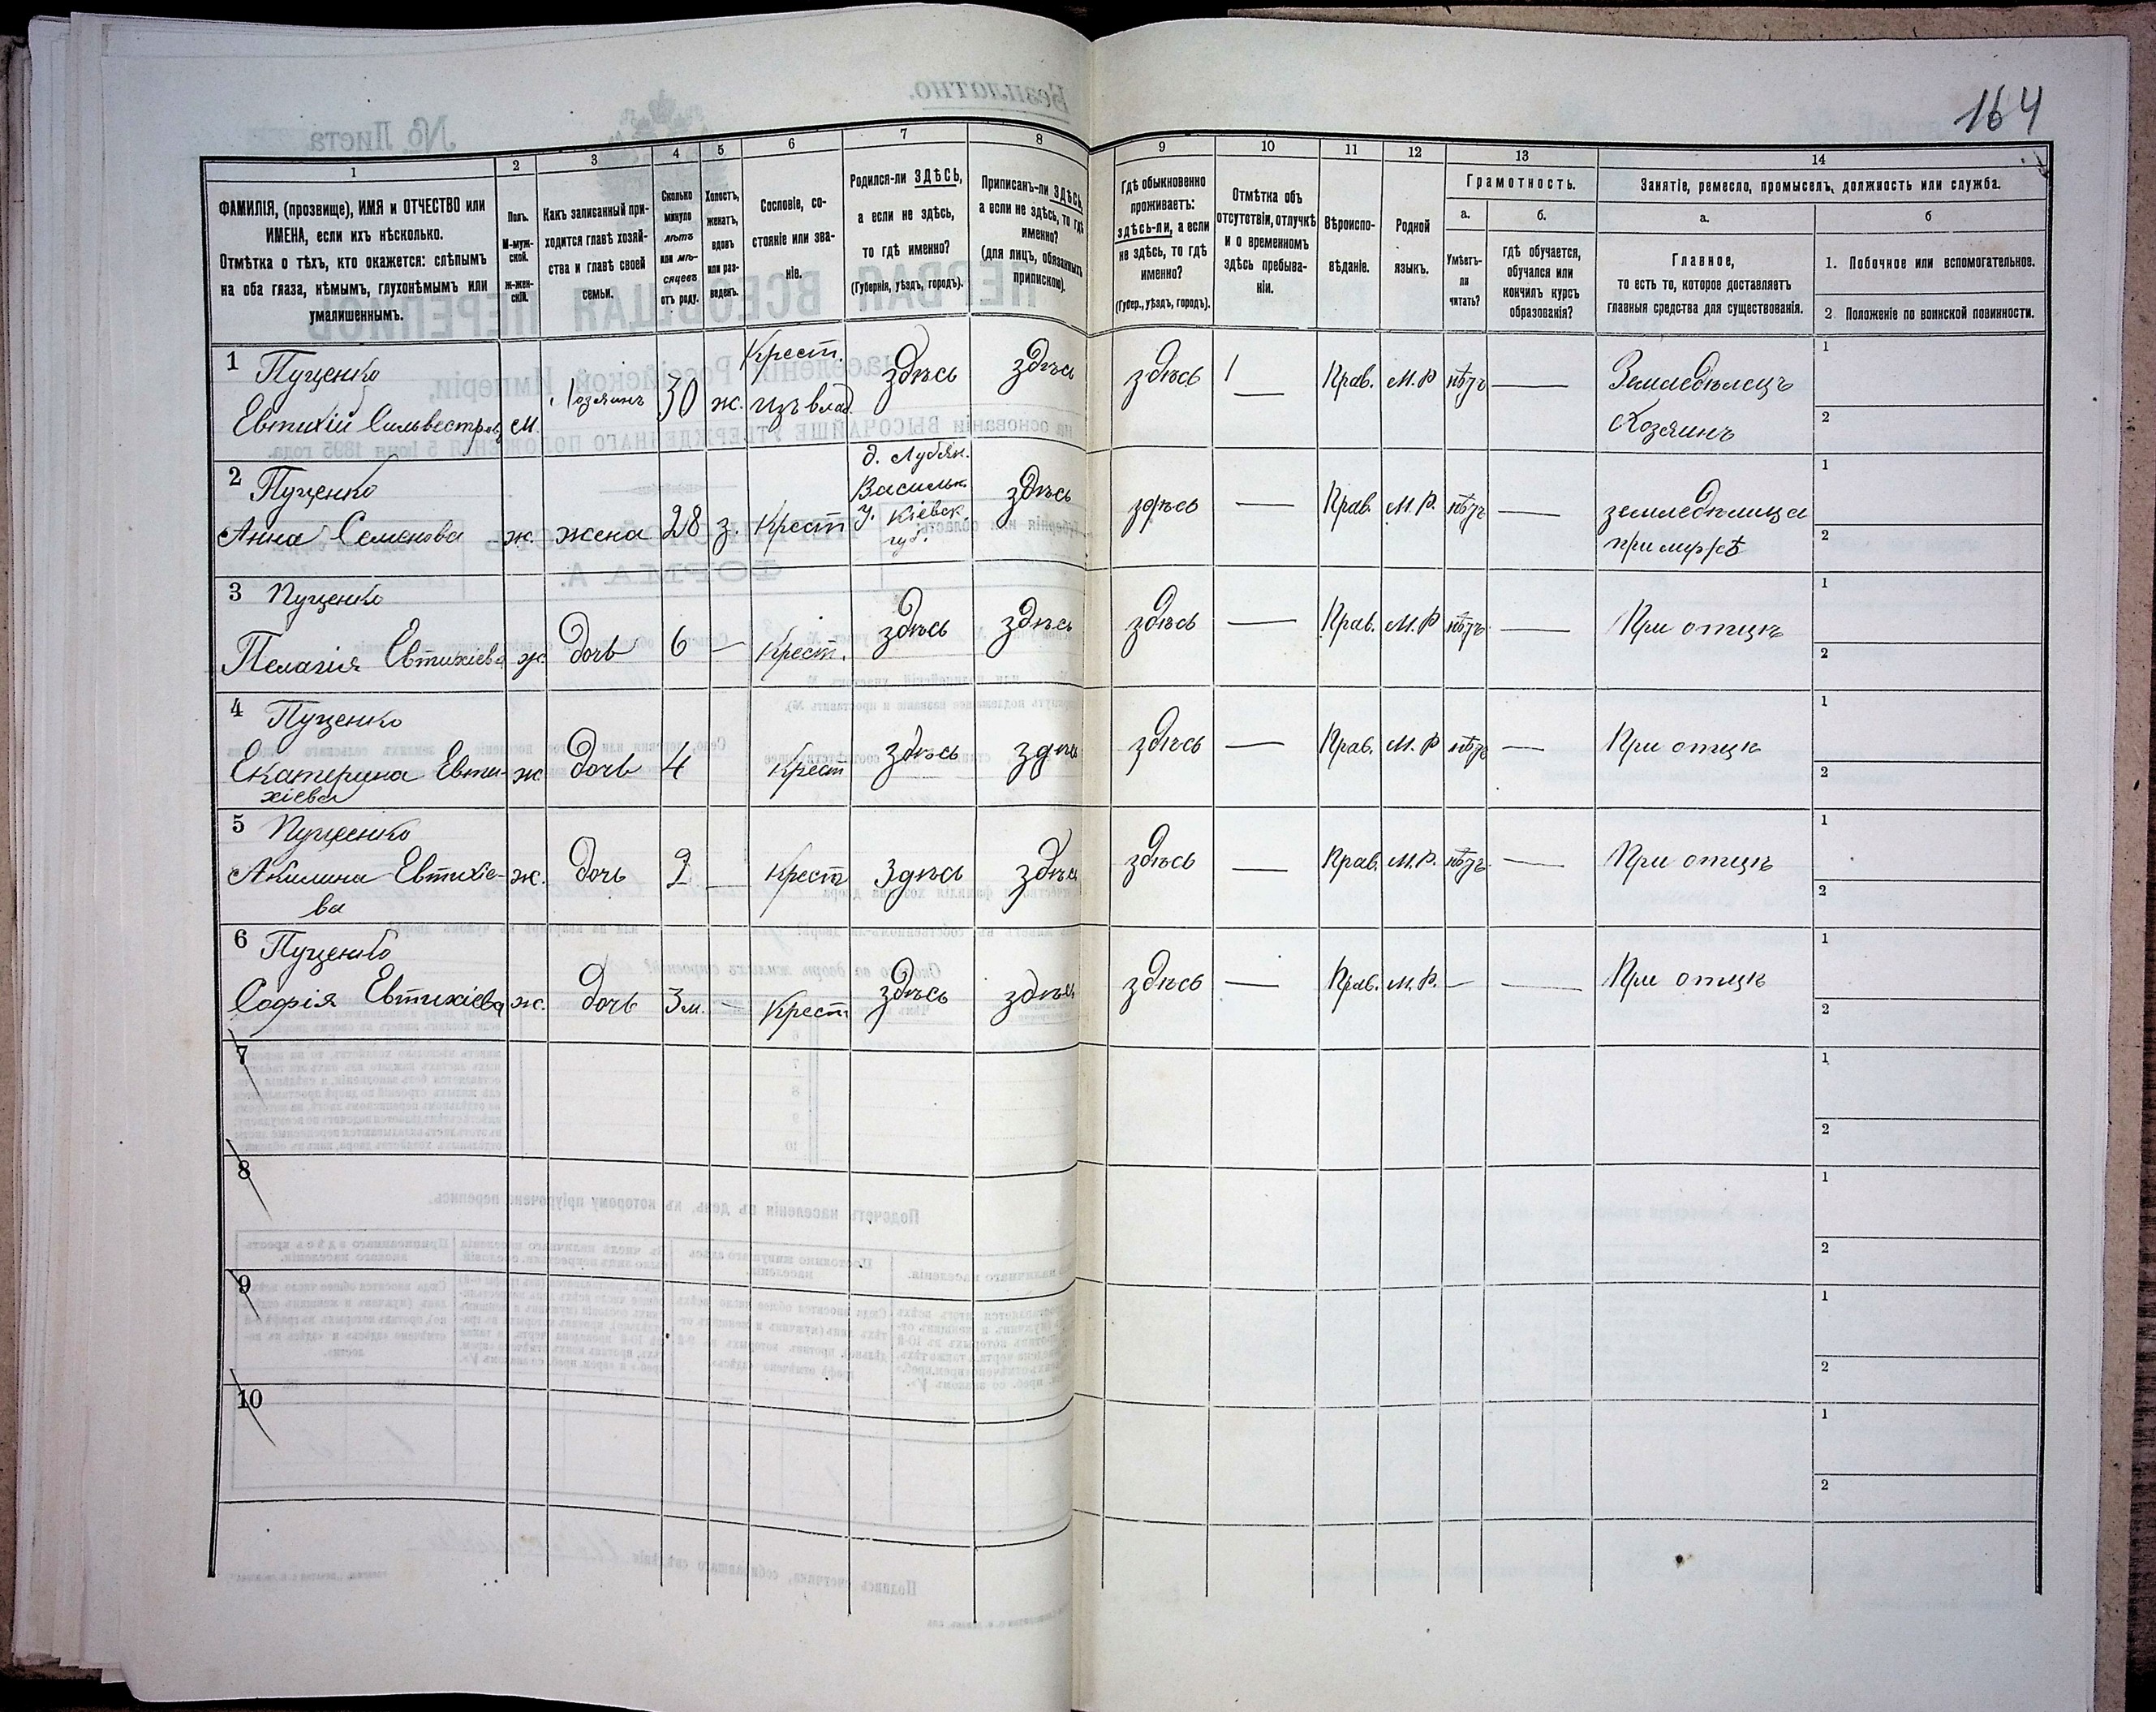 164
1
2
3
4
5
6
7
8
9
10
11
12
13
14
ФАМИЛІЯ, (прозвище), ИМЯ и ОТЧЕСТВО или
ИМЕНА, если ихъ нѣсколько.
Отмѣтка о тѣхъ, кто окажется: слѣпымъ
на оба глаза, нѣмымъ, глухонѣмымъ или
умалишеннымъ.
Полъ.
М-муж-
ской.
ж-жен-
скій.
Какъ записанный при-
ходится главѣ хозяй-
ства и главѣ своей
семьи.
Сколько
минуло
лѣтъ
или мѣ-
сяцевъ
отъ роду.
Холостъ,
женатъ,
вдовъ
или раз-
веденъ.
Сословіе, со-
стояніе или зва-
ніе.
Родился-ли ЗДѢСЬ,
а если не здѣсь,
то гдѣ именно?
(Губернія, уѣздъ, городъ).
Приписанъ-ли ЗДѢСЬ,
а если не здѣсь, то гдѣ
именно?
(для лицъ, обязанныхъ
припискою).
Гдѣ обыкновенно
проживаетъ:
здѣсь-ли, а если
не здѣсь, то гдѣ
именно?
(Губер., уѣздъ, городъ).
Отмѣтка объ
отсутствіи, отлучкѣ
и о временномъ
здѣсь пребыва-
ніи.
Вѣроиспо-
вѣданіе.
Родной
языкъ.
Грамотность.
а.
б.
Умѣетъ-
ли
читать?
гдѣ обучается,
обучался или
кончилъ курсъ
образованія?
Занятіе, ремесло, промыселъ, должность или служба.
а.
б
Главное,
то есть то, которое доставляетъ
главныя средства для существованія.
1. Побочное или вспомогательное.
2. Положеніе по воинской повинности.
1 Пущенко
Евтихій Сильвестров м. Хозяинъ 30 ж. Крест. изъ влад. здѣсь здѣсь здѣсь 1 — Прав. М.Р нѣтъ — Земледѣлецъ
Хозяинъ
1
2
2 Пущенко
Анна Семенова ж. жена 28 з. Крест д. Лубян.
Васильк.
У. Кіевск.
губ.
здѣсь здѣсь — Прав. М.Р. нѣтъ — земледѣлица
при мужѣ
1
2
3 Пущенко
Пелагія Евтихіева ж дочь 6 — Крест. здѣсь здѣсь здѣсь — Прав. М.Р нѣтъ — При отцѣ
1
2
4 Пущенко
Екатерина Евти- ж дочь 4 Крест здѣсь здѣсь здѣсь — Прав. М.Р нѣтъ — При отцѣ
хіева
1
2
5 Пущенко
Акилина Евтихіе- ж. дочь 2 — Крест здѣсь здѣсь здѣсь — Прав. М.Р. нѣтъ — При отцѣ
ва
1
2
6 Пущенко
Софія Евтихіева ж. дочь 3 м. — Крест здѣсь здѣсь здѣсь — Прав. М.Р. — — При отцѣ
1
2
7
1
2
8
1
2
9
1
2
10
1
2